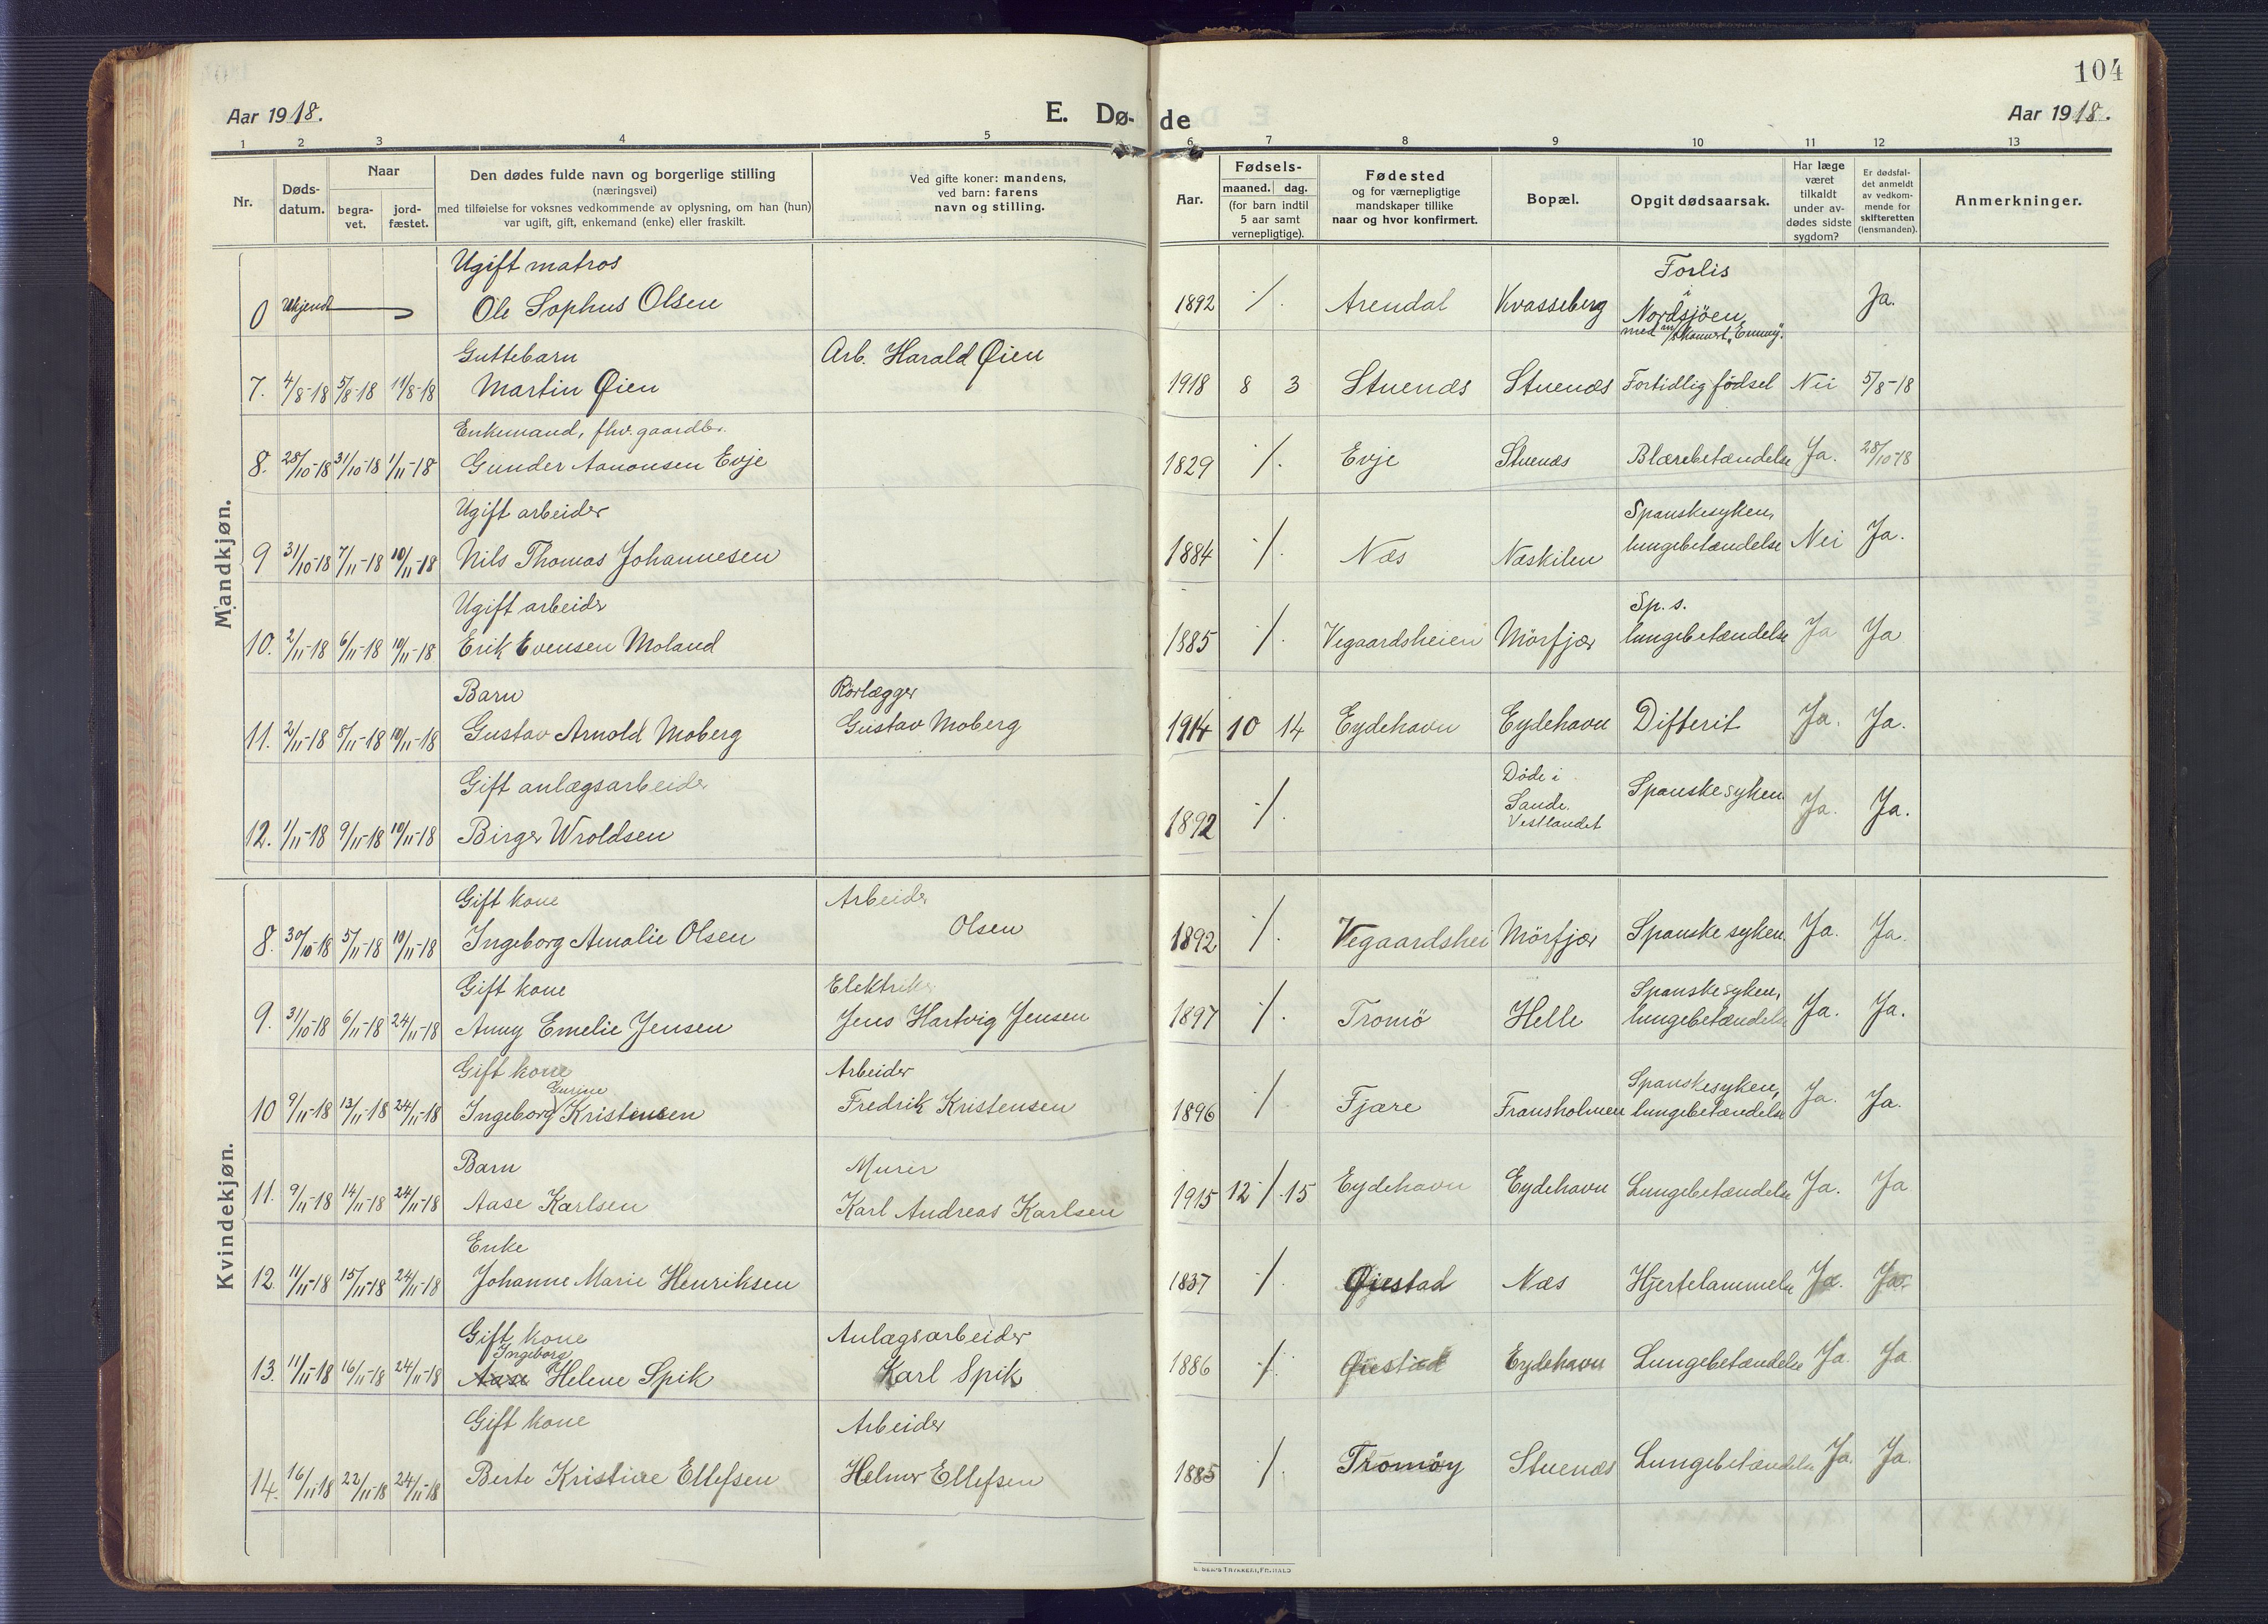 104
Aar 1918.
E. Dø-
de
Aar 1918.
1 2 3 4 5 6 7 8 9 10 11 12 13
Nr.
Døds-
datum.
Naar
begra-
vet.
jord-
fæstet.
Den dødes fulde navn og borgerlige stilling
(næringsvei)
med tilføielse for voksnes vedkommende av oplysning, om han (hun)
var ugift, gift, enkemand (enke) eller fraskilt.
Ved gifte koner: mandens,
ved barn: farens
navn og stilling.
Aar.
Fødsels-
maaned. dag.
(for barn indtil
5 aar samt
vernepligtige).
Fødested
og for værnepligtige
mandskaper tillike
naar og hvor konfirmert.
Bopæl.
Opgit dødsaarsak.
Har læge
været
tilkaldt
under av-
dødes sidste
sygdom?
Er dødsfal-
det anmeldt
av vedkom-
mende for
skifteretten
(lensmanden).
Anmerkninger.
Mandkjøn.
Ugift matros
0 Ukjendt Ole Sophus Olsen 1892 ./. Arendal Kvasseberg Forlis
i
Nordsjøen
med m/skonnert "Emmy". Ja.
Guttebarn Arb. Harald Øien
7. 4/8-18 5/8-18 11/8-18 Martin Øien 1918 8 3 Stuenæs Stuenæs Fortidlig fødsel Nei 5/8-18
Enkemand, fhv. gaardbr.
8. 28/10-18 31/10-18 1/11-18 Gunder Aanonsen Evje 1829 ./. Evje Stuenæs Blærebetændelse Ja. 28/10-18
Ugift arbeider Spanskesyken,
9 31/10-18 7/11-18 10/11-18 Nils Thomas Johannesen 1884 ./. Næs Næskilen lungebetændelse Nei Ja.
Ugift arbeider Sp. s.
10. 2/11-18 6/11-18 10/11-18 Erik Evensen Moland 1885 ./. Vegaardsheien Mörfjær lungebetændelse Ja Ja
Barn Rørlægger
11. 2/11-18 8/11-18 10/11-18 Gustav Arnold Moberg Gustav Moberg 1914 10 14 Eydehavn Eydehavn Difterit Ja. Ja.
Gift anlægsarbeider Døde i
Sande.
Vestlandet
12. 1/11-18 9/11-18 10/11-18 Birger Wroldsen 1892 ./. Spanskesyken. Ja. Ja.
Kvindekjøn.
Gift kone Arbeider
8. 30/10-18 5/11-18 10/11-18 Ingeborg Amalie Olsen Olsen 1892 ./. Vegaardshei Mörfjær Spanske syken. Ja. Ja.
Gift kone Elektriker Spanskesyken,
9. 31/10-18 6/11-18 24/11-18 Anny Emelie Jensen Jens Hartvig Jensen 1897 ./. Tromö Helle lungebetændelse Ja. Ja.
Gift kone Arbeider Spanskesyken,
Gurine
10 9/11-18 13/11-18 24/11-18 Ingeborg Kristensen Fredrik Kristensen 1896 ./. Fjære Fransholmen lungebetændelse Ja. Ja.
Barn Murer
11. 9/11-18 14/11-18 24/11-18 Aase Karlsen Karl Andreas Karlsen 1915 12 ./. 15 Eydehavn Eydehavn Lungebetændelse Ja. Ja
Enke
12 11/11-18 15/11-18 24/11-18 Johanne Marie Henriksen 1837 ./. Øiestad Næs Hjertelammelse Ja. Ja.
Gift kone Anlægsarbeider
Ingeborg
13. 11/11-18 16/11-18 24/11-18 Aase Helene Spik Karl Spik 1886 ./. Øiestad Eydehavn Lungebetændelse Ja. Ja
Gift kone Arbeider
14. 16/11-18 22/11-18 24/11-18 Berte Kristine Ellefsen Helmer Ellefsen 1885 ./. Tromøy Stuenæs Lungebetændelse Ja. Ja.